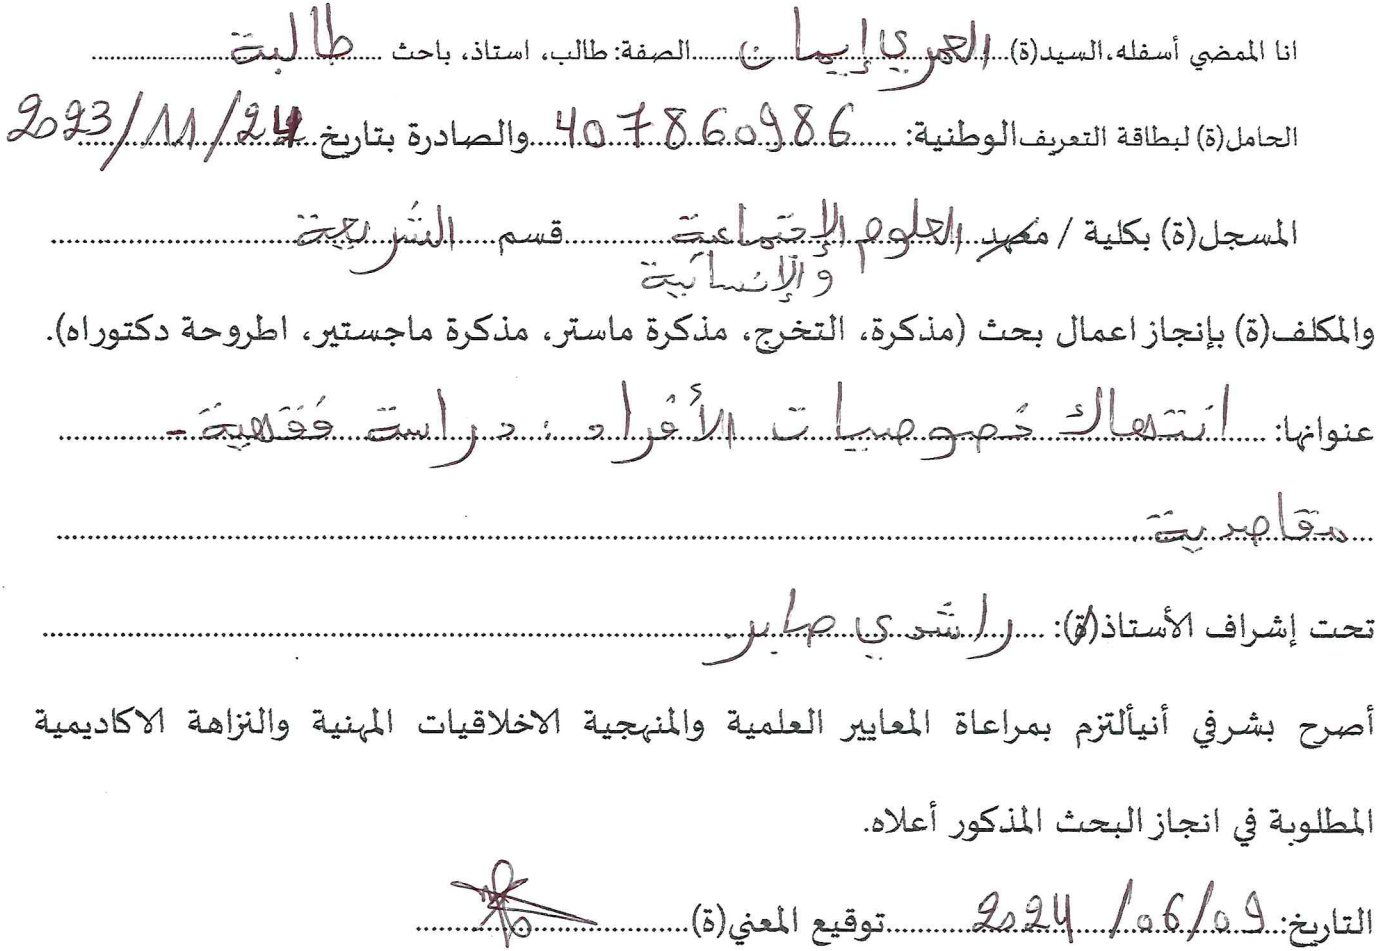 انا الممضي أسفله،السيد(ة)....العمري إيمان....الصفة: طالب، استاذ، باحث ....طالبة....
الحامل(ة) لبطاقة التعريف الوطنية: ....407860986....والصادرة بتاريخ 2023/11/24
المسجل(ة) بكلية / معهد العلوم الإجتماعية....قسم ....الشريعة....
والإنسانية
والمكلف(ة) بإنجاز اعمال بحث (مذكرة، التخرج، مذكرة ماستر، مذكرة ماجستير، اطروحة دكتوراه).
عنوانها: ....انتهاك خصوصيات الأفراد : دراسة فقهية -
مقاصدية.
تحت إشراف الأستاذ(ة): ....راشدي صابر....
أصرح بشرفي أنيألتزم بمراعاة المعايير العلمية والمنهجية الاخلاقيات المهنية والنزاهة الاكاديمية
المطلوبة في انجاز البحث المذكور أعلاه.
التاريخ: 2024/06/09....توقيع المعني(ة)....